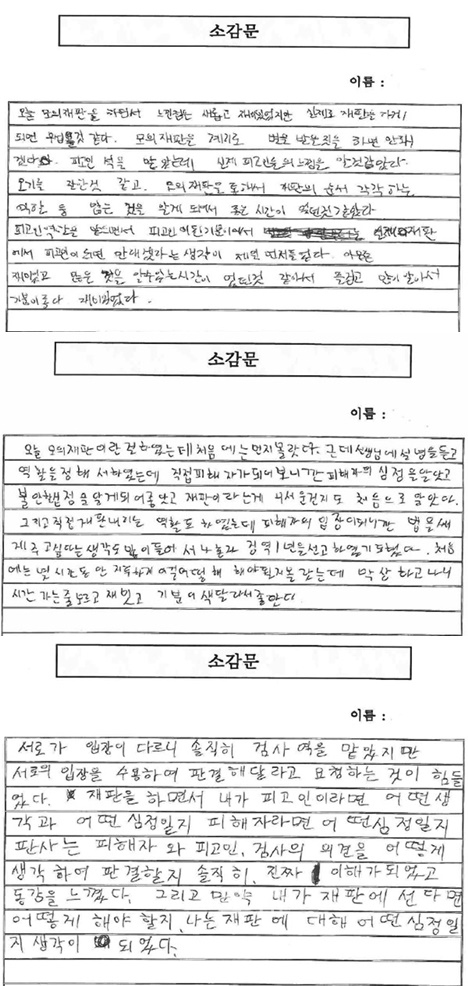 소감문
이름 :
오늘 모의재판을 하면서 느낀점은 새롭고 재미있었지만 실제로 재판을 가게
되면 무섭을것 같다. 모의재판을 계기로 범죄 를 하면 안되
겠다. 피고인 역을 맡았는데 실제 피고인들의 느낌을 안것같았다.
오기를 잘한것 같고. 모의재판을 통해서 재판의 순서 각각 하는
역할 등 많은 것을 알게 되어서 좋은 시간이 였던것 같았다
피고인역할을 맡으면서 피고인이 재판
에서 피고인이 되면 안되겠다라는 생각이 제일 먼저들었다. 아무튼
재미있고 많은 것을 알수있는시간이 였던것 같아서 즐겁고 많이 알아서
기분이좋다 재미있었다.
소감문
이름 :
오늘 모의재판이란 걸하였는데 처음 에는먼지몰랏다. 근데 선생님에 설명을듣고
역할을정해 서하였는데 직접피해자가되어보니깐 피해자의 심정을알았고
불안한심정을알게되어좋았고 재판이라는게 무서운건지도 처음으로 알았다.
그리고직접재판내리는 역할도 하였는데 피해자의 입장이되니깐 벌을쎄
게주고싶다는생각도많이들어서 징역1년을선고하였기도했다. 처음
에는 몇시간도 안 지루하게 어떻게 해야될지몰랐는데 막상 하고나니
시간 가는줄모르고 재밋고 기분이색달라서좋았다
소감문
이름 :
서로가 입장이 다르니 솔직히 검사 역을 맡았지만
서로의 입장을 수용하여 판결해달라고 요청하는 것이 힘들
었다. 재판을 하면서 내가 피고인이라면 어떤생
각과 어떤 심정일지 피해자라면 어떤심정일지
판사는 피해자 와 피고인, 검사의 의견을 어떻게
생각하여 판결할지 솔직히, 진짜 이해가되었고
동감을 느꼈다. 그리고 만약 내가 재판에 선다면
어떻게 해야 할지, 나는 재판에 대해 어떤심정일
지 생각이 되었다.